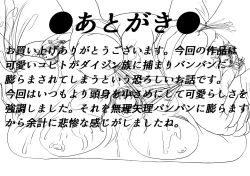 ●あとがき●
お買い上げありがとうございます。今回の作品は
可愛いコビトがダイジン族に捕まりパンパンに
膨らまされてしまうという恐ろしいお話です。
今回はいつもより頭身を中さめにして可愛らしさを
強調しました。それを無理矢理パンパンに膨らます
から余計に悲惨な感じがしましたね。